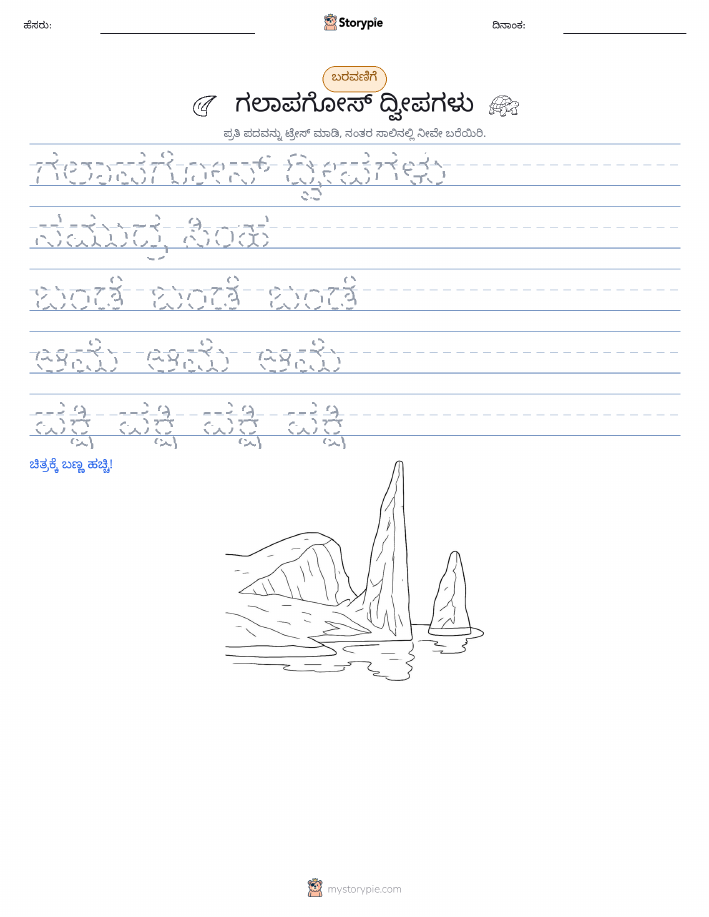 ಹೆಸರು:
Storypie
ದಿನಾಂಕ:
ಬರವಣಿಗೆ
ಗಲಾಪಗೋಸ್ ದ್ವೀಪಗಳು
ಪ್ರತಿ ಪದವನ್ನು ಟ್ರೇಸ್ ಮಾಡಿ, ನಂತರ ಸಾಲಿನಲ್ಲಿ ನೀವೇ ಬರೆಯಿರಿ.
ಗಲಾಪಗೋಸ್ ದ್ವೀಪಗಳು
ಸಮುದ್ರ ಸಿಂಹ
ಬಂಡೆ ಬಂಡೆ ಬಂಡೆ
ಆಮೆ ಆಮೆ ಆಮೆ
ಪಕ್ಷಿ ಪಕ್ಷಿ ಪಕ್ಷಿ ಪಕ್ಷಿ
ಚಿತ್ರಕ್ಕೆ ಬಣ್ಣ ಹಚ್ಚಿ!
mystorypie.com